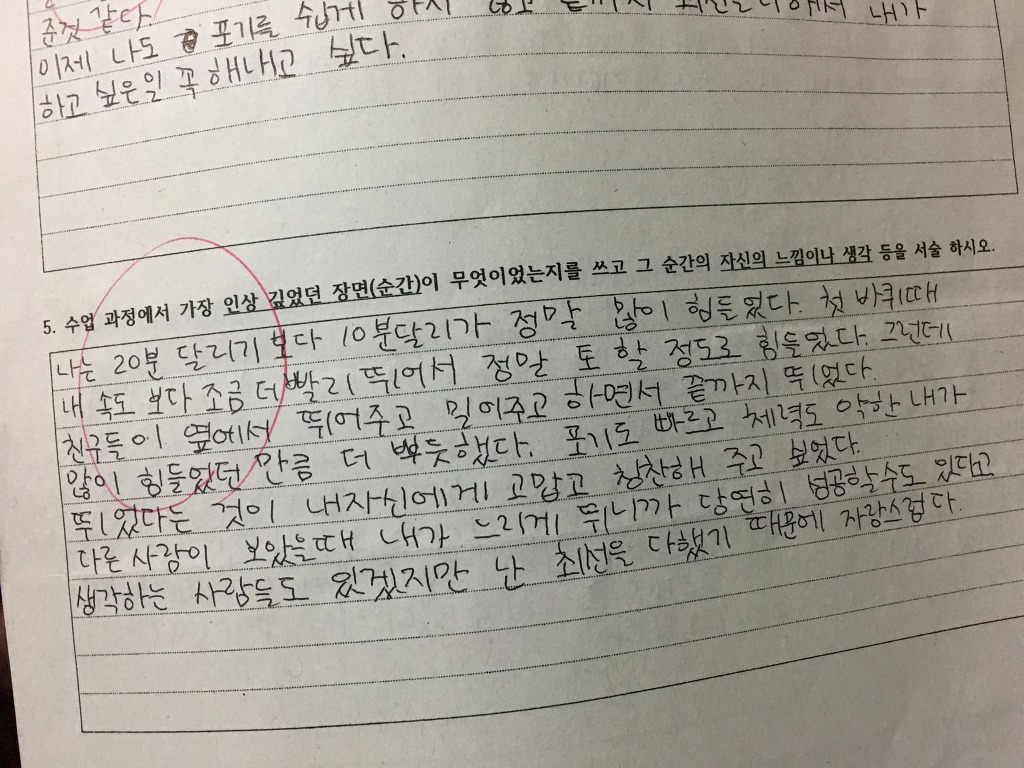 준것 같다.
이제 나도 포기를 쉽게 하지 않고 끝까지 최선을다해서 내가
하고 싶은일 꼭 해내고 싶다.
5. 수업 과정에서 가장 인상 깊었던 장면(순간)이 무엇이었는지를 쓰고 그 순간의 자신의 느낌이나 생각 등을 서술 하시오.
나는 20분 달리기 보다 10분달리가 정말 많이 힘들었다. 첫 바퀴때
내 속도 보다 조금 더 빨리 뛰어서 정말 토 할 정도로 힘들었다. 그런데
친구들이 옆에서 뛰어주고 밀어주고 하면서 끝까지 뛰었다.
많이 힘들었던 만큼 더 뿌듯했다. 포기도 빠르고 체력도 약한 내가
뛰었다는 것이 내자신에게 고맙고 칭찬해 주고 싶었다.
다른 사람이 보았을때 내가 느리게 뛰니까 당연히 성공할수도 있다고
생각하는 사람들도 있겠지만 난 최선을 다했기 때문에 자랑스럽다.